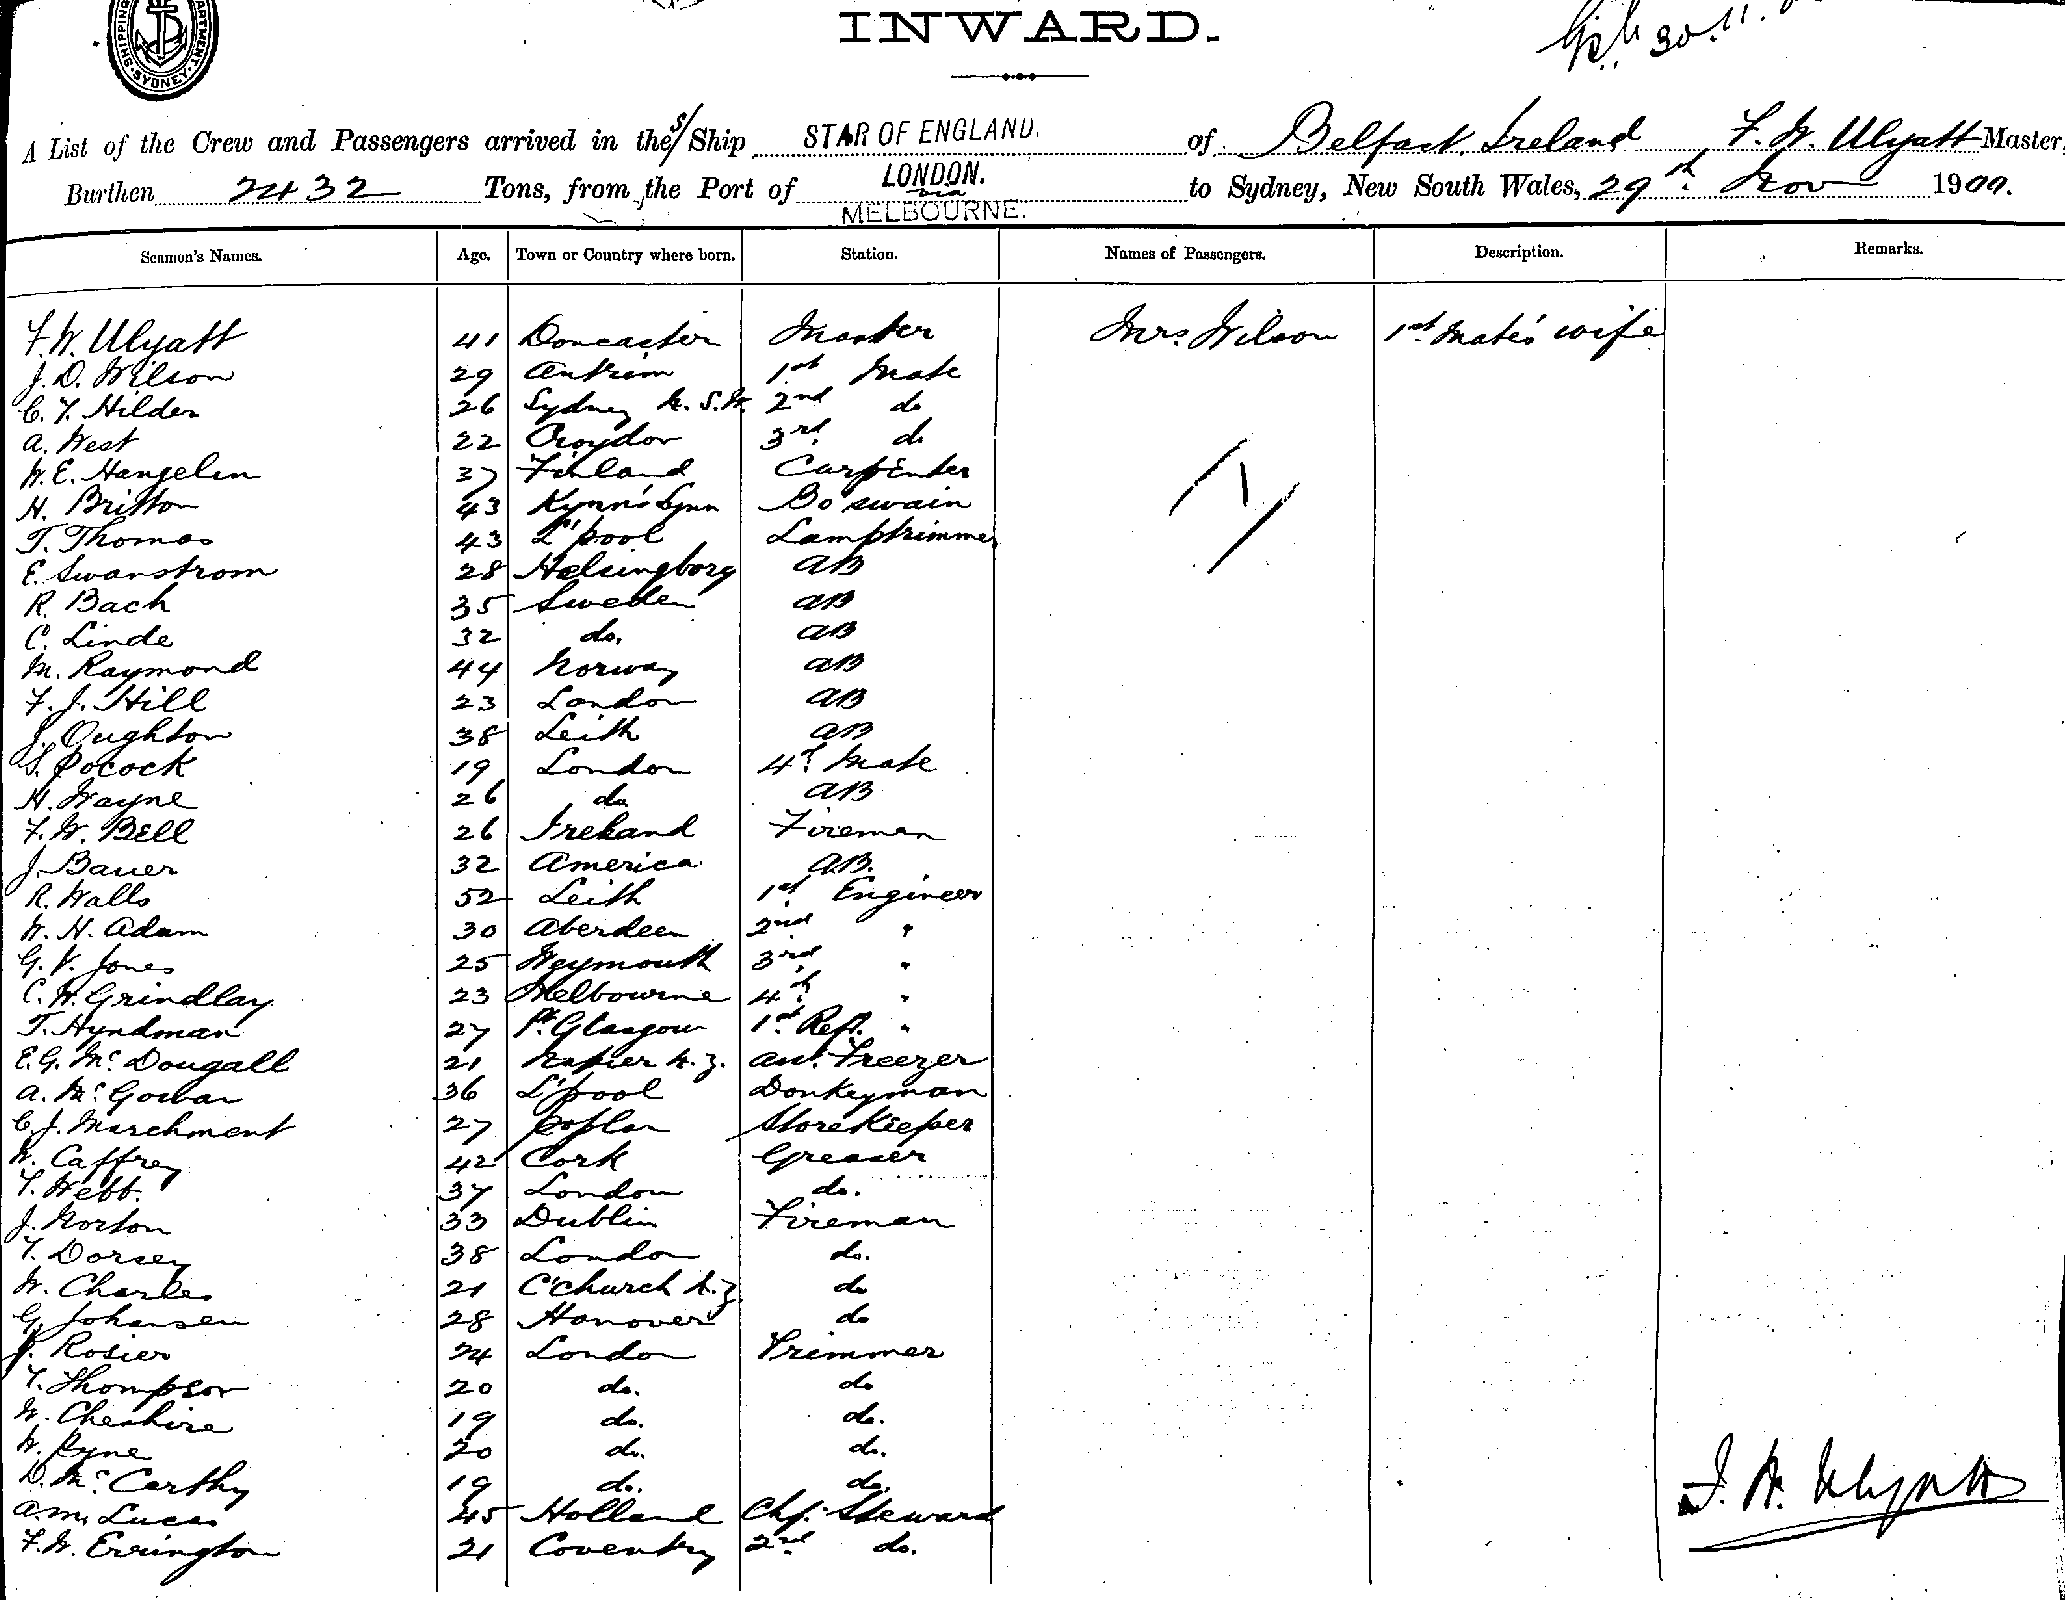 SHIPPING DEPARTMENT. SYDNEY.
INWARD.
30.11.
A List of the Crew and Passengers arrived in the s/Ship STAR OF ENGLAND. of Belfast, Ireland F. W. Ulyatt Master,
Burthen 2432 Tons, from the Port of LONDON. via MELBOURNE. to Sydney, New South Wales, 29th Nov 1900.
Seamen's Names. Age. Town or Country where born. Station. Names of Passengers. Description. Remarks.
F. W. Ulyatt 41 Doncaster Master Mrs. Wilson 1st Mate's wife
J. D. Wilson 29 Antrim 1st Mate
C. F. Hilder 26 Sydney N.S.W. 2nd do
A. West 22 Croydon 3rd do
W. E. Hangelin 37 Finland Carpenter
H. Britton 43 Kynn's Lynn Bo'swain
T. Thomas 43 L'pool Lamptrimmer
E. Swanstrom 28 Helsingborg AB
R. Bach 35 Sweden AB
C. Linde 32 do. AB
M. Raymond 44 Norway AB
F. J. Hill 23 London AB
J. Oughton 38 Leith AB
S. Pocock 19 London 4th Mate
H. Wayne 26 do AB
F. W. Bell 26 Ireland Fireman
J. Bauer 32 America A.B.
R. Walls 52 Leith 1st Engineer
W. H. Adam 30 Aberdeen 2nd "
G. V. Jones 25 Weymouth 3rd "
C. W. Grindlay 23 Melbourne 4th "
T. Hyndman 27 Pt. Glasgow 1st Refr. "
E. G. McDougall 21 Napier N.Z. Ast. Freezer
A. McGowan 36 L'pool Donkeyman
C. J. Marchment 27 Poplar Storekieper
W. Caffrey 42 Cork Greaser
T. Webb. 37 London do.
J. Norton 33 Dublin Fireman
T. Dorsey 38 London do.
W. Charles 21 C'church N.Z do
G. Johansen 28 Hanover do
J. Rosier 24 London Trimmer
T. Thompson 20 do. do
W. Cheshire 19 do. do.
W. Pyne 20 do. do.
D. McCarthy 19 do. do.
A. M. Lucas 45 Holland Chf. Steward
F. W. Errington 21 Coventry 2nd do.
F. W. Ulyatt